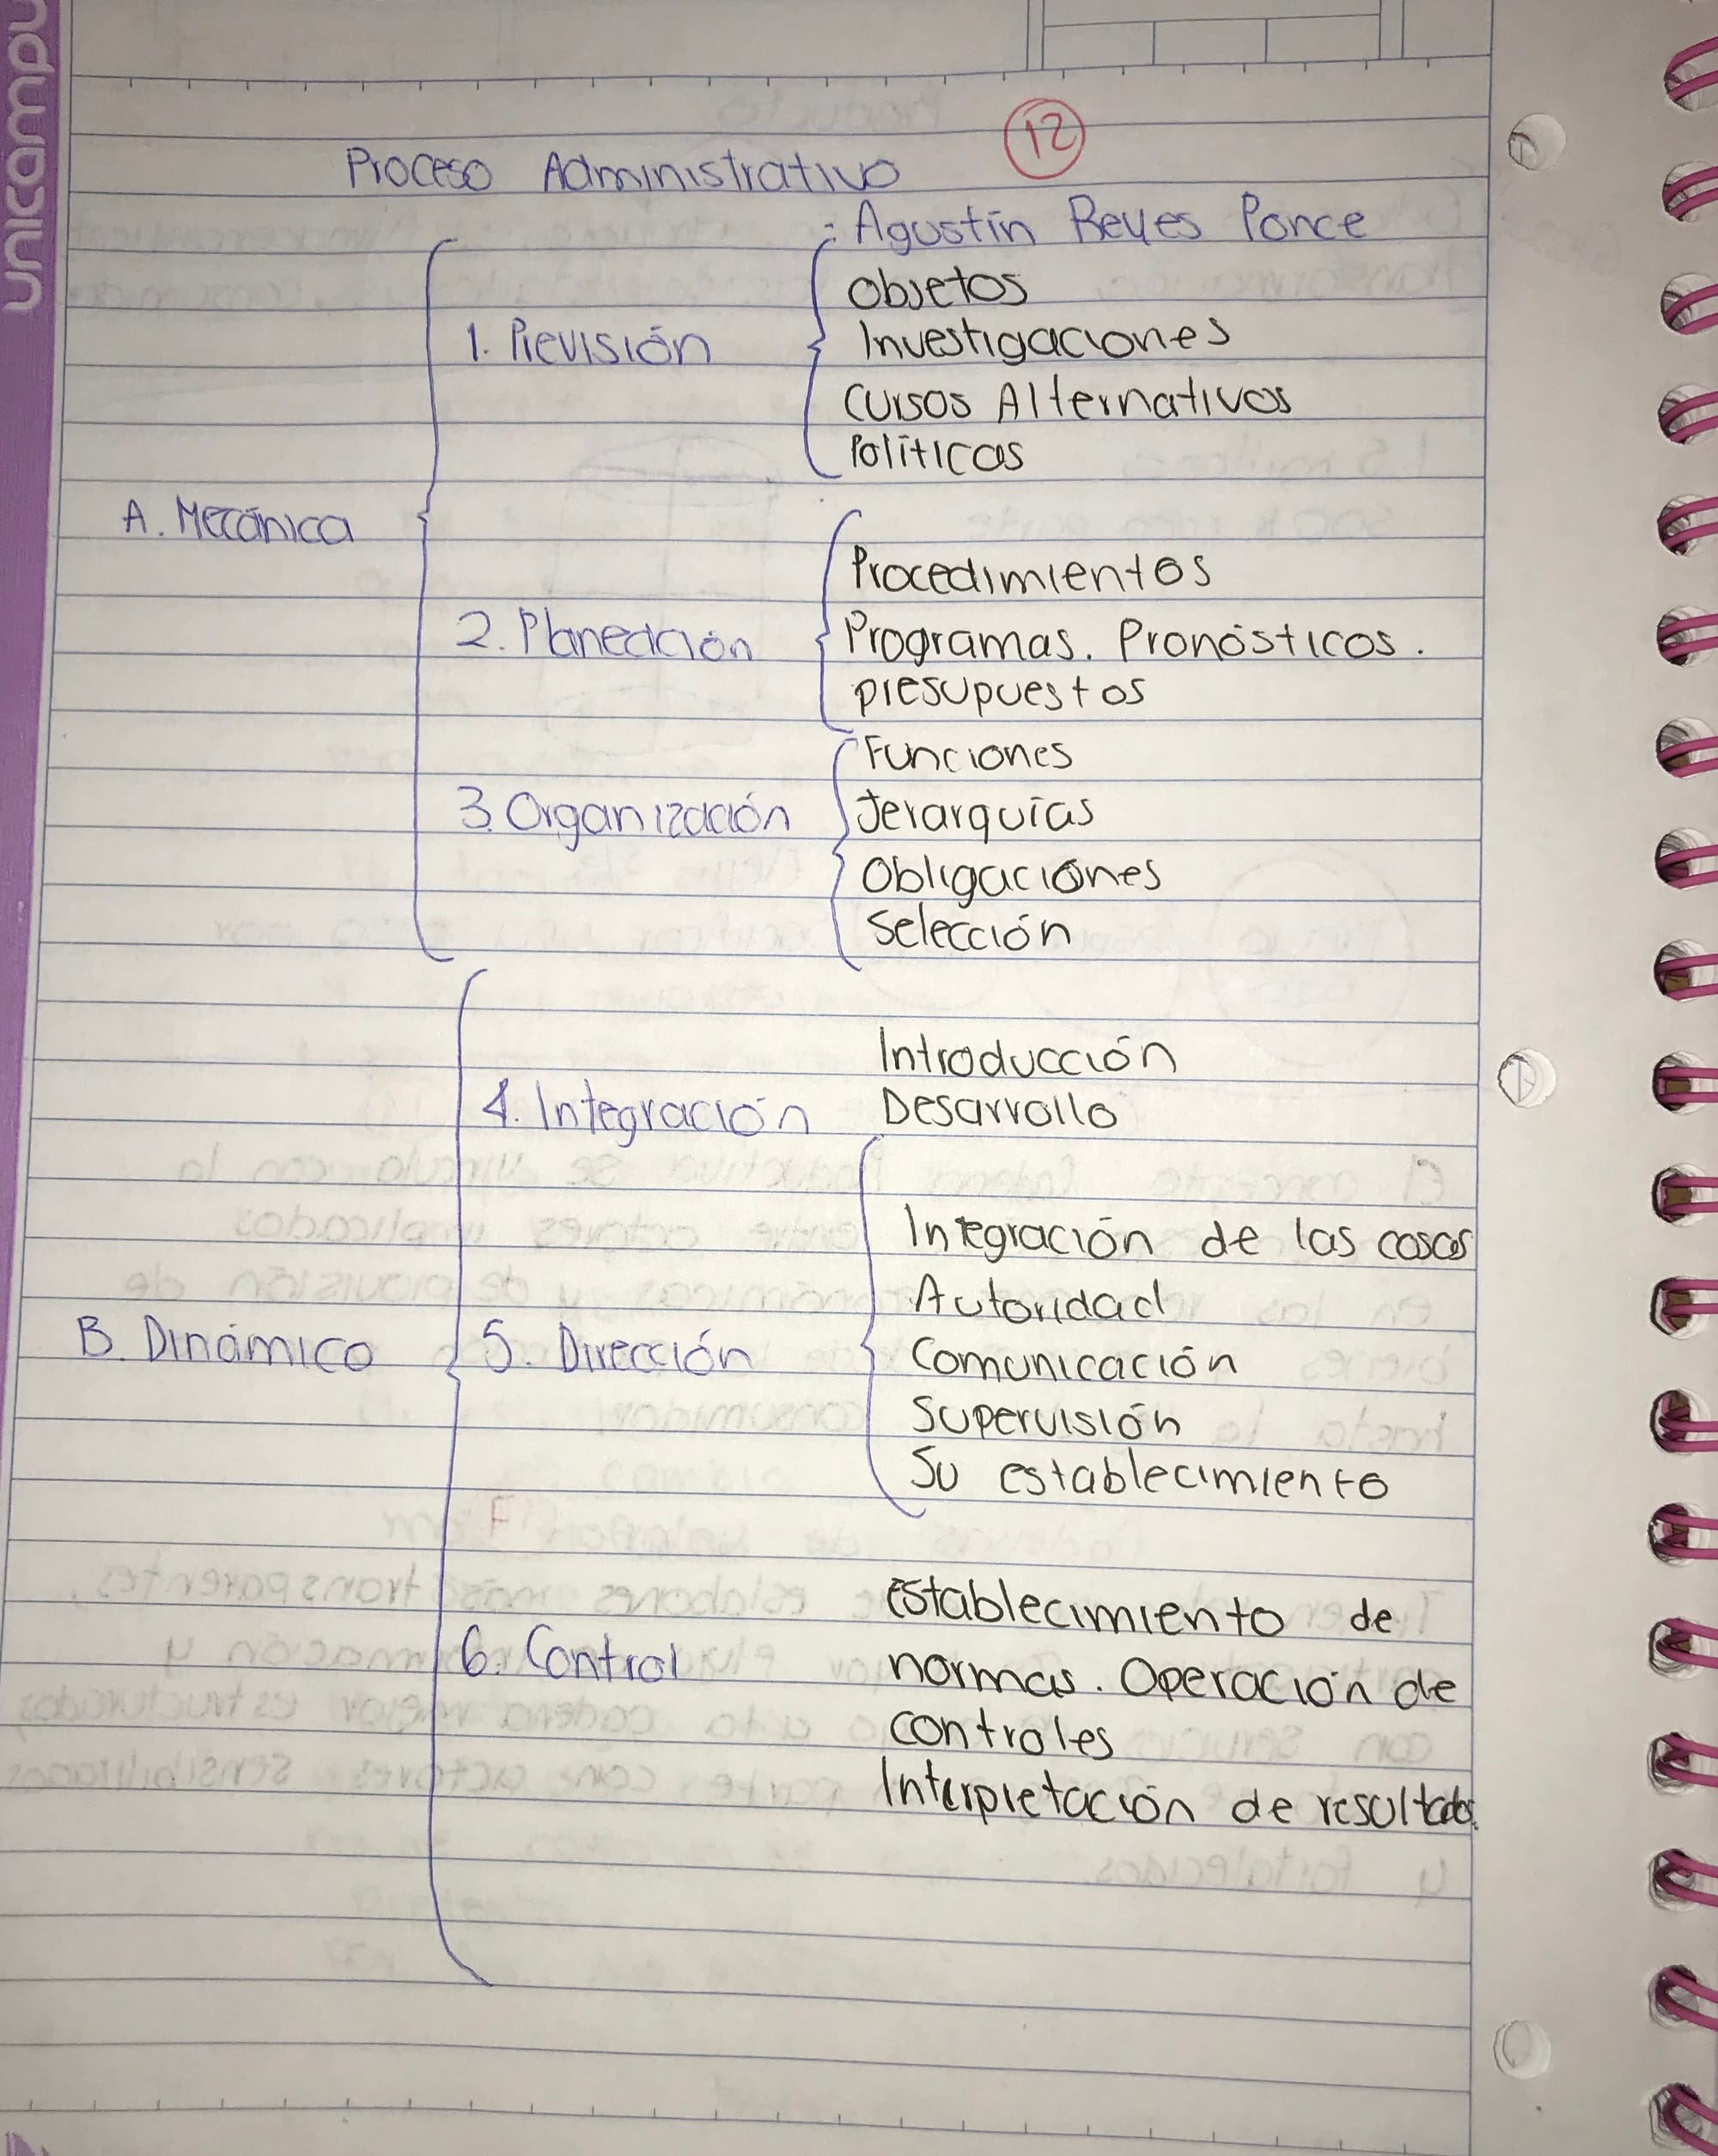 unicampu
12
Proceso Administrativo
: Agustín Reyes Ponce
Objetos
1. Previsión
Investigaciones
Cursos Alternativos
Políticas
A. Mecánica
Procedimientos
2. Planeación
Programas. Pronósticos.
presupuestos
Funciones
3. Organización
Jerarquías
Obligaciones
Selección
Introducción
4. Integración
Desarrollo
Integración de las cosas
Autoridad
B. Dinámico
5. Dirección
Comunicación
Supervisión
Su establecimiento
Establecimiento de
6. Control
normas. Operación de
controles
Interpretación de resultados.